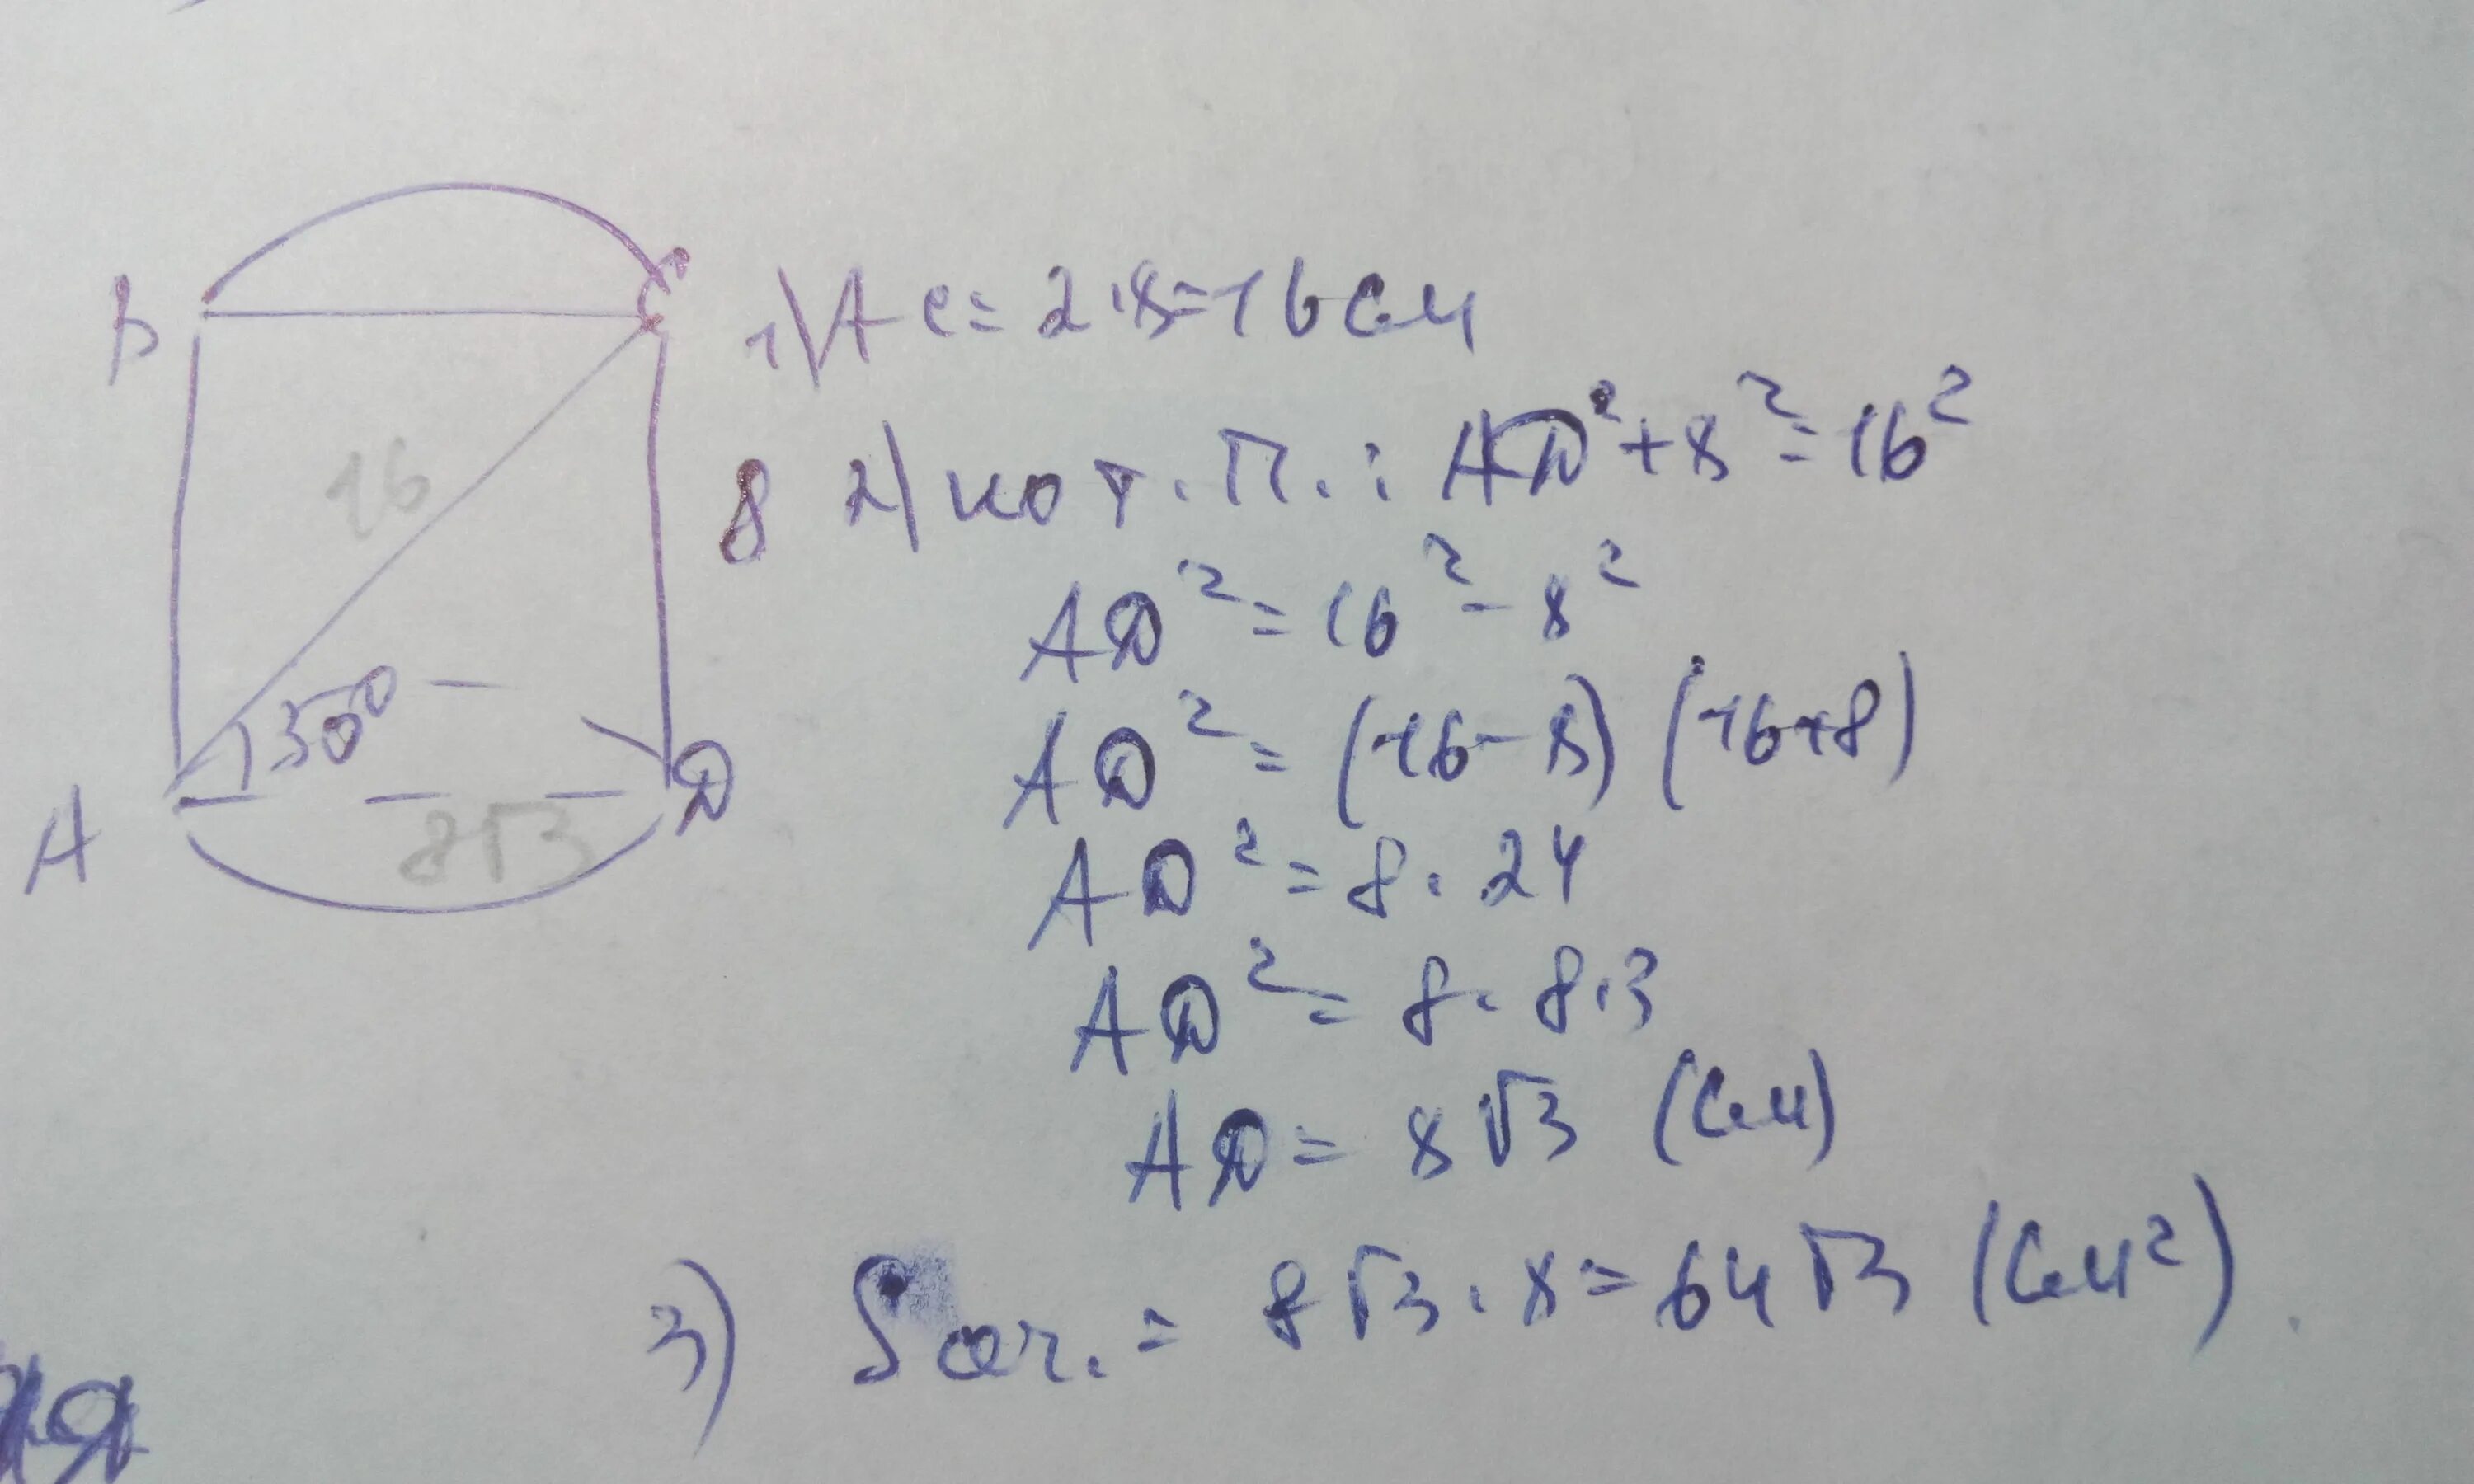 B
C
16
8
30°
A
D
8√3
1) AC = 2·8 = 16 см
2) по т. П.: AD² + 8² = 16²
AD² = 16² - 8²
AD² = (16 - 8) (16+8)
AD² = 8 · 24
AD² = 8 · 8·3
AD = 8√3 (см)
3) Sос. = 8√3 · 8 = 64√3 (см²).